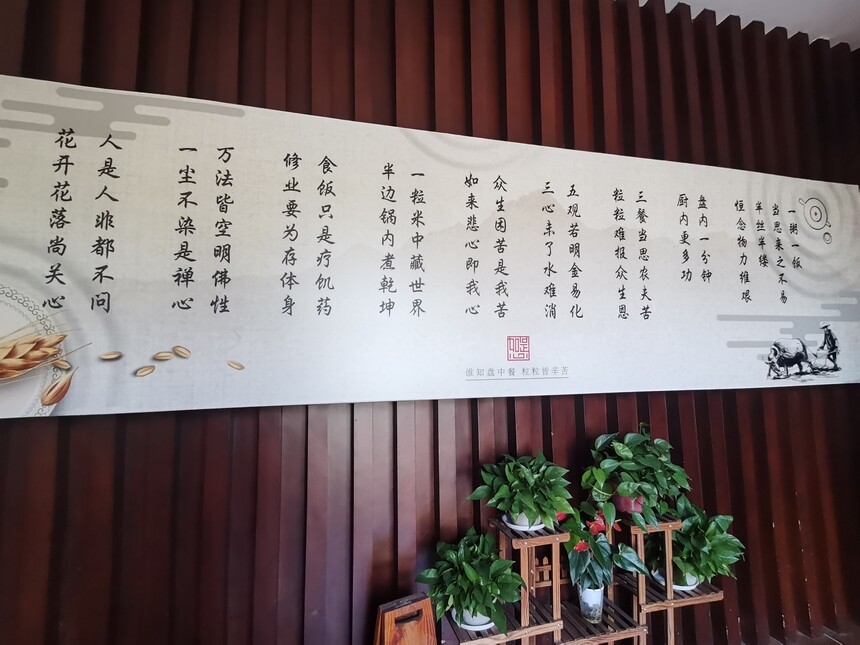 一粥一饭
当思来之不易
半丝半缕
恒念物力维艰
盘内一分钟
厨内更多功
三餐当思农夫苦
粒粒难报众生恩
五观若明金易化
三心未了水难消
众生困苦是我苦
如来悲心即我心
一粒米中藏世界
半边锅内煮乾坤
食饭只是疗饥药
修业要为存体身
万法皆空明佛性
一尘不染是禅心
人是人非都不问
花开花落尚关心
谁知盘中餐 粒粒皆辛苦